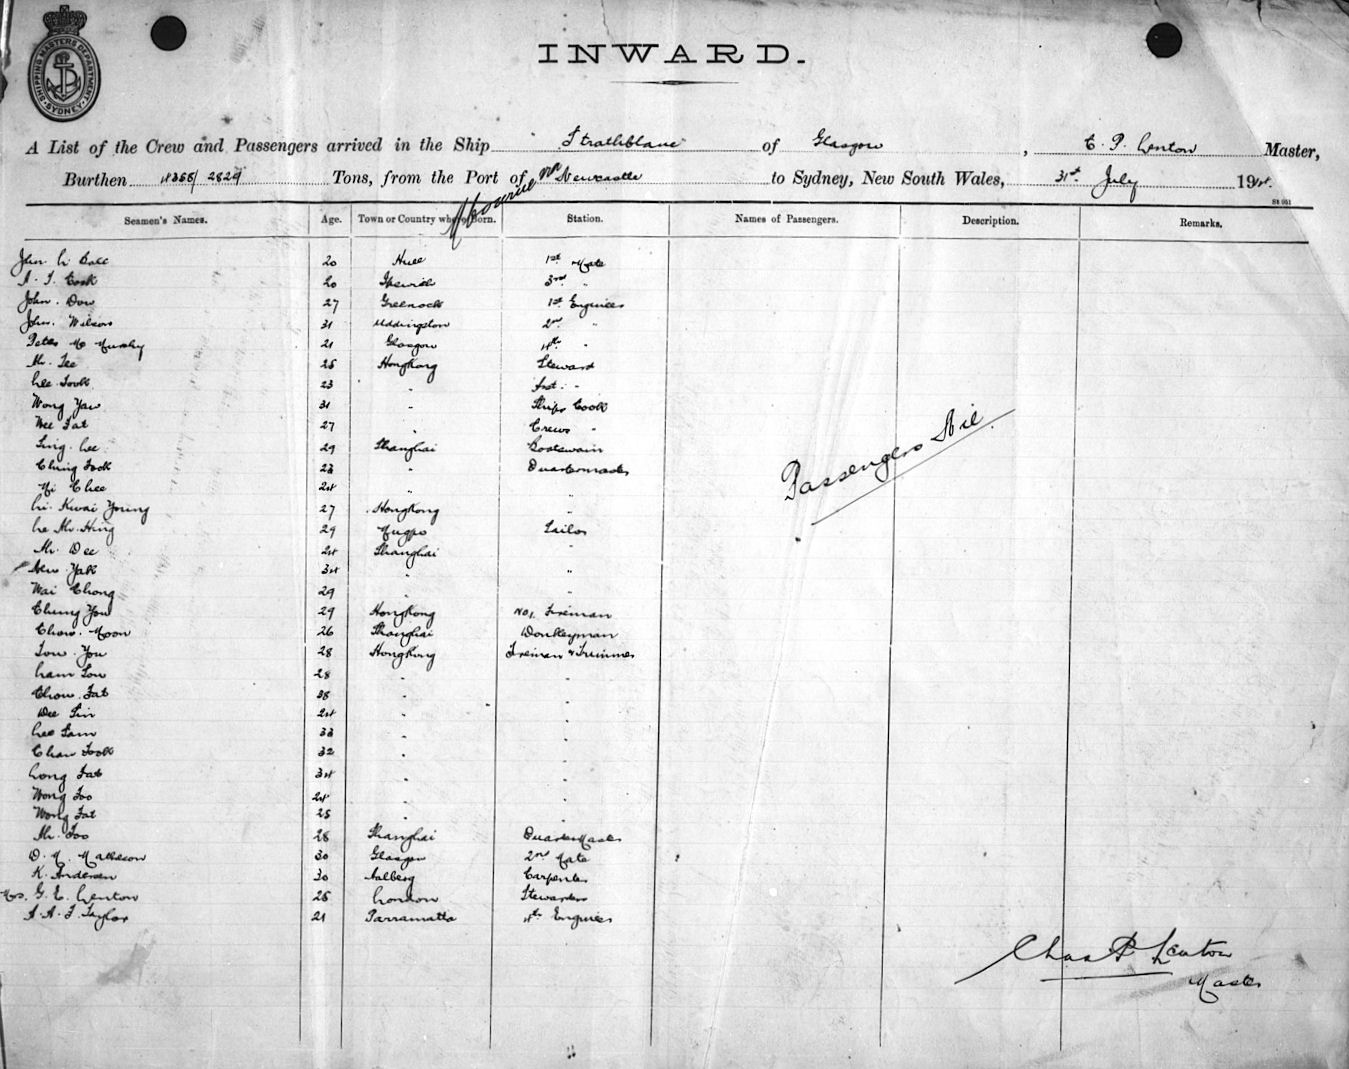 SHIPPING MASTERS DEPARTMENT
SYDNEY
INWARD.
A List of the Crew and Passengers arrived in the Ship Strathblane of Glasgow, C. P. Lenton Master,
Burthen 4386/2824 Tons, from the Port of Newcastle to Sydney, New South Wales, 31st July 19
Seamen's Names. Age. Town or Country where Born. Station. Names of Passengers. Description. Remarks.
John 20 Hull 1st Mate
20 Ipswich 3rd "
John Dow 27 Greenock 1st Engineer
John. Wilson 31 Uddingston 2nd "
Peter Mc Murchy 21 Glasgow 4th "
Ah. Tee 25 HongKong Steward
Lee Fook 23 " Asst. "
Wong Yaw 31 " Ships Cook
Wee Fat 27 " Crews "
Sing. Lee 29 Shanghai Boatswain
Ching Fook 23 " Quartermaster
24 " "
Li. Kwai Young 27 HongKong "
29 Ningpo Sailor
Ah. Dee 24 Shanghai "
34 " "
Wai Chong 29 " "
Chung You 29 HongKong No1. Fireman
Chow. Moon 26 Shanghai Donkeyman
You 28 HongKong Fireman & Trimmer
28 " "
Chow. Fat 38 " "
24 " "
Lee Sam 33 " "
Chan Fook 32 " "
Long Fat 34 " "
Wong Foo 24 " "
Wong Fat 25 " "
Ah. Foo 28 Shanghai QuarterMaster
D. M. Matheson 30 Glasgow 2nd Mate
K. Andersen 30 Aalberg Carpenter
Mrs. G. E. Lenton 25 London Stewardess
A. A. F. Taylor 21 Parramatta 4th Engineer
Passengers Nil.
Chas P Lenton
Master